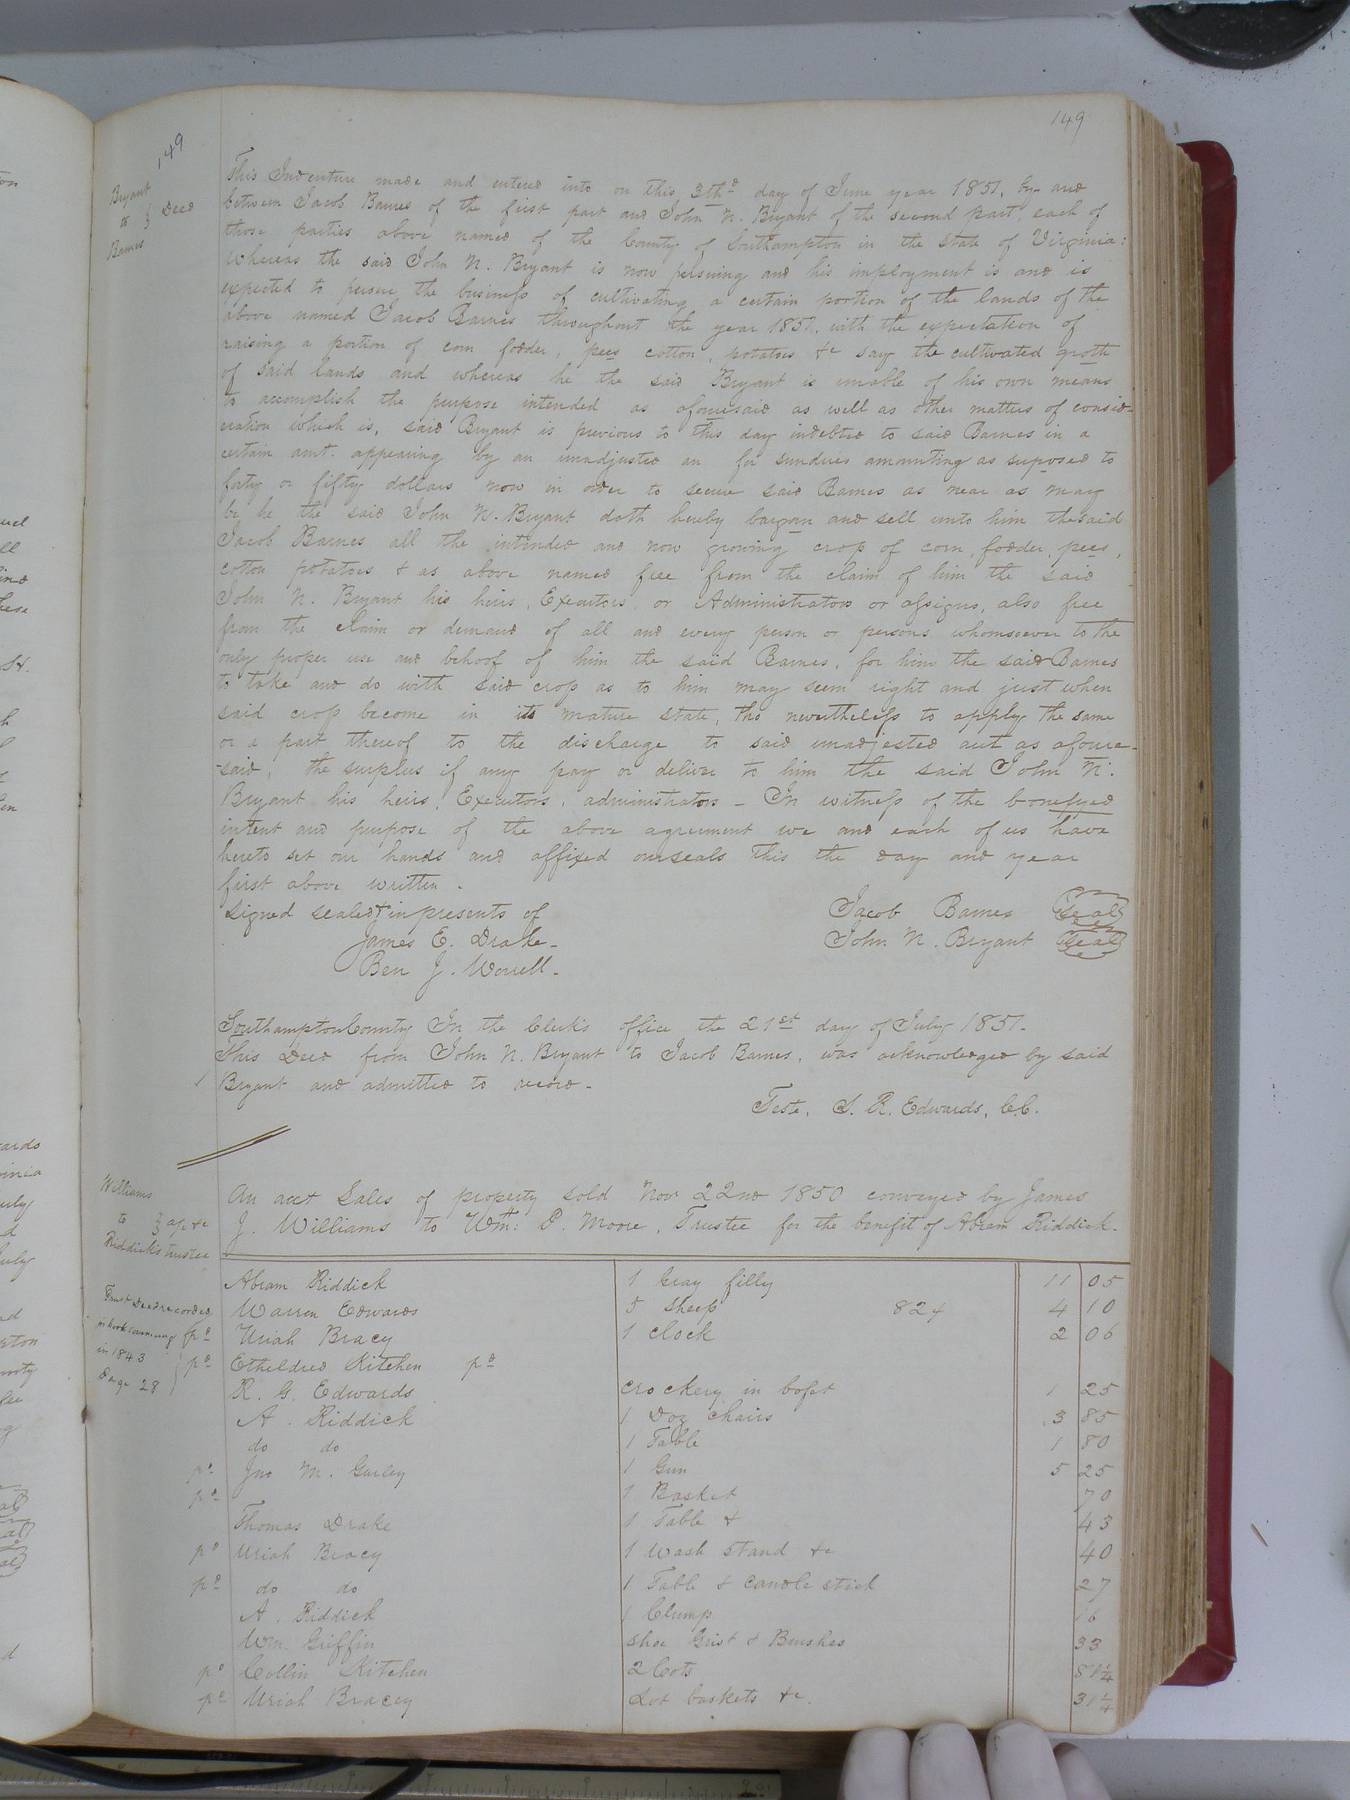 149
149
Bryant
to } Deed
Barnes
This Indenture made and entered into on this 3thd day of June year 1851, by and
between Jacob Barnes of the first part and John N. Bryant of the second part, each of
those parties above named of the County of Southampton in the State of Virginia:
Whereas the said John N. Bryant is now persuing and his imployment is and is
expected to persue the business of cultivating a certain portion of the lands of the
above named Jacob Barnes throughout the year 1851, with the expectation of
raising a portion of corn fodder, pees cotton, potatoes &c say the cultivated groth
of said lands and whereas he the said Bryant is unable of his own means
to accomplish the purpose intended as aforesaid as well as other matters of consid-
eration which is, said Bryant is previous to this day indebted to said Barnes in a
certain amt. appearing by an unadjusted an for sundries amounting as suposed to
forty or fifty dollars now in order to secure said Barnes as near as may
be he the said John N. Bryant doth hereby bargan and sell unto him the said
Jacob Barnes all the intended and now growing crop of corn, fodder, pees,
cotton potatoes & as above named free from the claim of him the said
John N. Bryant his heirs, Executors, or Administrators or assigns, also free
from the claim or demand of all and every person or persons whomsoever to the
only proper use and behoof of him the said Barnes, for him the said Barnes
to take and do with said crop as to him may seem right and just when
said crop become in its mature state, tho nevertheless to apply the same
or a part thereof to the discharge to said unadjested act as afoure-
-said, the surplus if any pay or deliver to him the said John N.
Bryant his heirs, Executors, administrators - In witness of the bonefyed
intent and purpose of the above agreement we and each of us have
hereto set our hands and affixed our seals this the day and year
first above written.
Signed sealed & in presents of
James E. Drake-
Ben J. Worrell-
Jacob Barnes Seal
John N. Bryant Seal
Southampton County In the Clerk's office the 21st day of July 1851-
This Deed from John N. Bryant to Jacob Barnes, was acknowledged by said
Bryant and admitted to record-
Teste, S. R. Edwards, C.C.
Williams
to
Riddick's trustee
Trust Deed recorded
in book commencing
in 1843
Page 28
An acct Sales of property sold Nov 22nd 1850 conveyed by James
J. Williams to Wm: P. Moore, Trustee for the benefit of Abram Riddick.
Abram Riddick 1 Gray filly 11 05
Warren Edwards 5 Sheep 82¢ 4 10
pd Uriah Bracy 1 clock 2 06
pd Etheldred Kitchen pd
R. G. Edwards crockery in bofat 1 25
A. Riddick 1 Doz chairs 3 85
do do 1 Table 1 80
pd Jno M. Gurley 1 Gun 5 25
pd 1 Basket 70
Thomas Drake 1 Table & 43
pd Uriah Bracy 1 Wash stand &c 40
pd do do 1 Table & candle stick 27
A. Riddick 1 16
Wm. Griffin Shoe & Brushes 33
pd Collin Kitchen 2 Cots 81¼
pd Uriah Bracey Lot baskets &c. 31¼